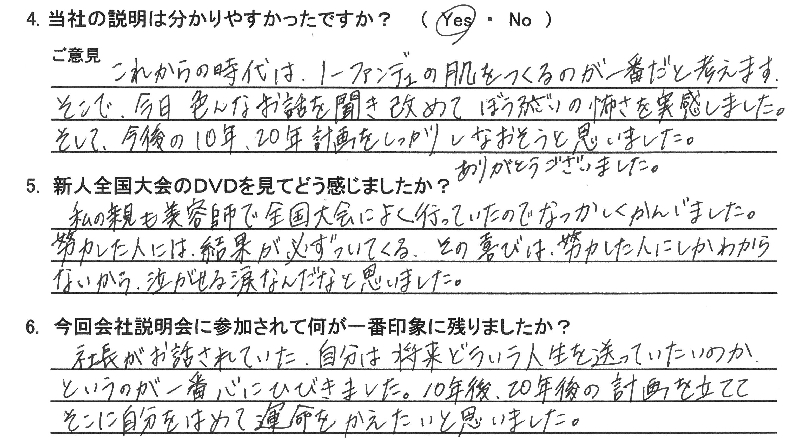 4. 当社の説明は分かりやすかったですか？ （ Yes ・ No ）
ご意見
これからの時代は、ノーファンデの肌をつくるのが一番だと考えます。
そこで、今日 色んなお話を聞き 改めて ぼうふざいの怖さを実感しました。
そして、今後の10年、20年計画をしっかり しなおそうと思いました。
ありがとうございました。
5. 新人全国大会のDVDを見てどう感じましたか？
私の親も美容師で全国大会によく行っていたのでなつかしくかんじました。
努力した人には、結果が必ずついてくる、その喜びは、努力した人にしかわから
ないから、泣がせる涙なんだなと思いました。
6. 今回会社説明会に参加されて何が一番印象に残りましたか？
社長がお話されていた、自分は 将来どういう人生を送っていたいのか、
というのが一番心にひびきました。10年後、20年後の計画を立てて
そこに自分をはめて運命をかえたいと思いました。